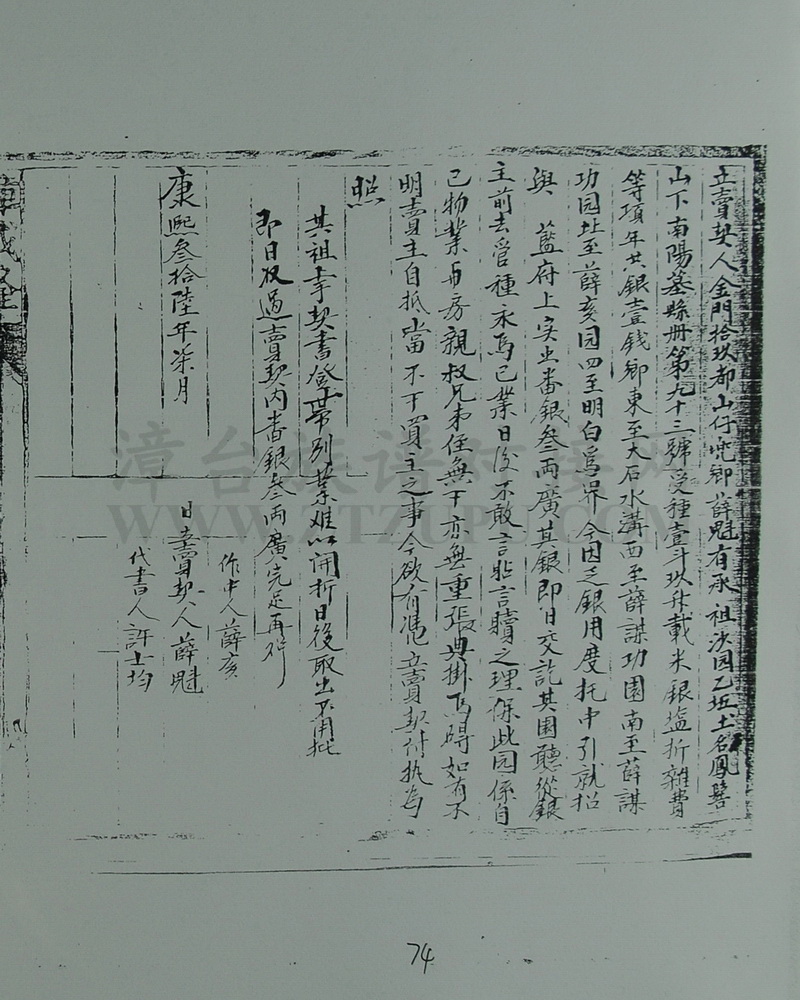 立賣契人金門拾玖都山仔兜鄉薛魁有承祖沙园乙坵土名鳳髻
山下南陽墓縣册第九十三號受種壹斗玖升載米銀塩折雜費
等項年共銀壹錢鄉東至大石水溝西至薛謀功園南至薛謀
功园北至薛亥园四至明白為界今因乏銀用度托中引就招
與 藍府上实出番銀叁両廣其銀即日交訖其園聽從銀
主前去管種永為己業日後不敢言貼言贖之理保此园係自
己物業與房親叔兄弟侄無干亦無重張典掛為碍如有不
明賣主自抵當不干買主之事今欲有憑立賣契付执為
照
其祖上手契書登帶別業难以開折日後取出不用批
即日收過賣契内番銀叁両廣完足再炤
作中人薛亥
康熙叁拾陸年柒月 日立賣契人薛魁
代書人許士均
漳台族谱对接网
WWW.ZTZUPU.COM
74